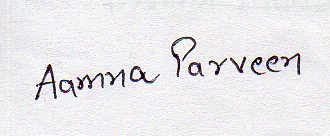 Aamna Parveen